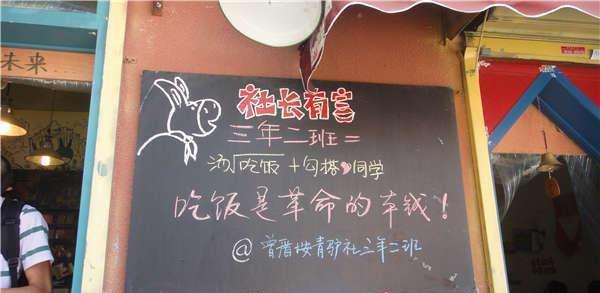 未来
社长有言
三年二班=
汤√吃饭+勾搭 同学
吃饭是革命的本钱!
@曾厝垵青驴社三年二班